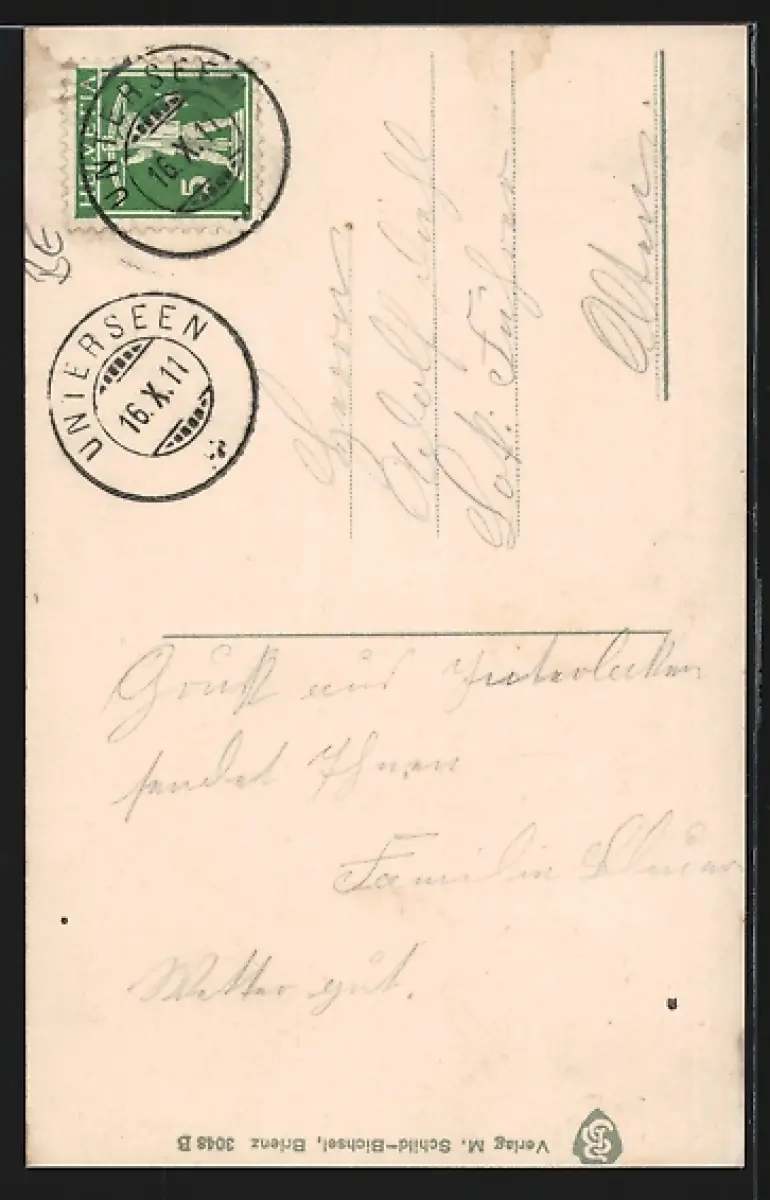 HELVETIA
5
UNTERSEEN
16.X.11
UNTERSEEN
16.X.11
Herrn
Adolf
Lok. Führer
Olten.
Gruß aus Interlaken
sendet Ihnen
Familie
Wetter gut.
Verlag M. Schild-Bichsel, Brienz 3048 B